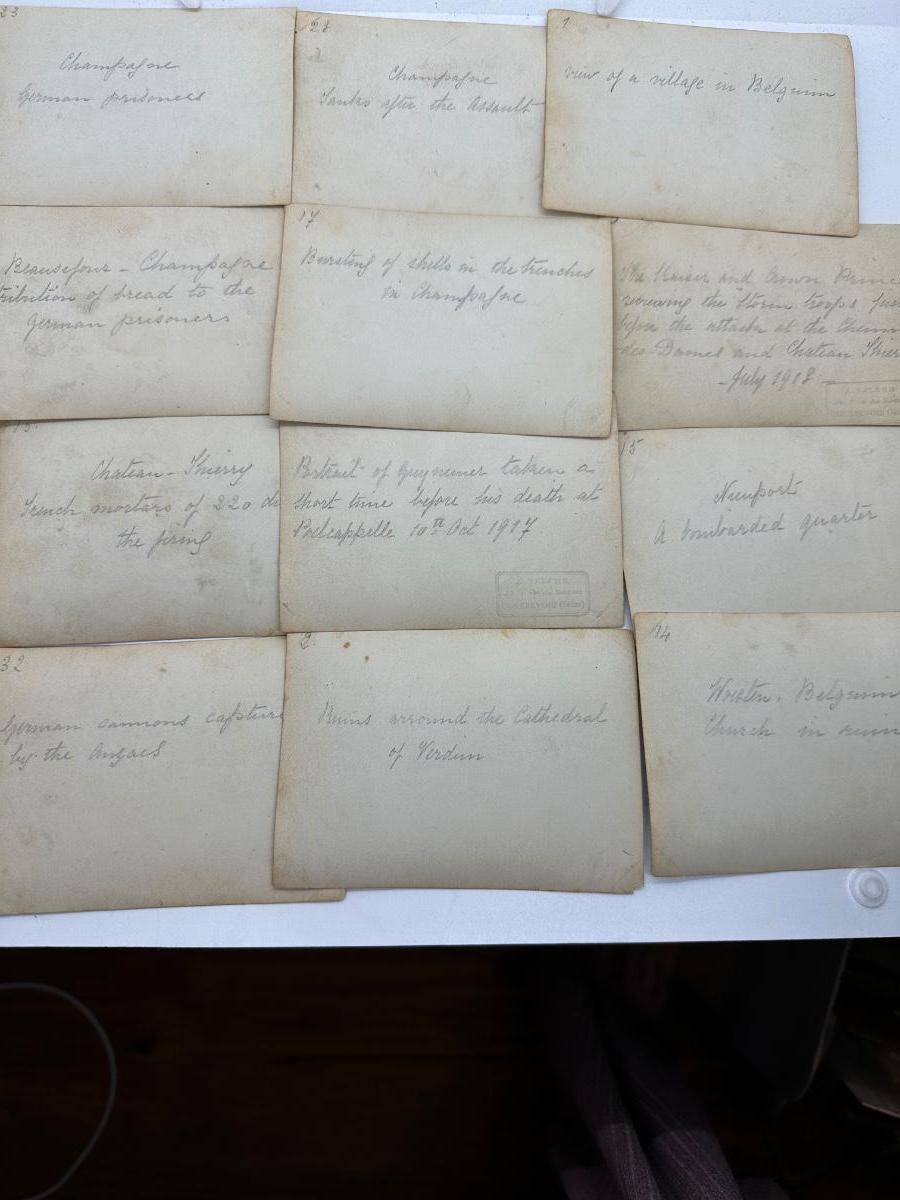 23
Champagne
German prisoners
28
Champagne
Tanks after the Assault
1
view of a village in Belguim
Beausejour - Champagne
tribution of bread to the
German prisoners
17
Bursting of shells in the trenches
in Champagne
The Kaiser and Crown Prince
viewing the Storm troops just
before the attacks at the Chemin
des-Dames and Chateau Thier
- July 1918 -
Chateau - Thierry
French mortars of 220 du
the firing
Portrait of Guynemer taken a
short time before his death at
Poelcappelle 10th Oct 1917
15
Nieuport
A bombarded quarter
32
German cannons capture
by the Anzacs
2
Ruins arround the Cathedral
of Verdun
14
Woesten. Belguim
Church in ruin